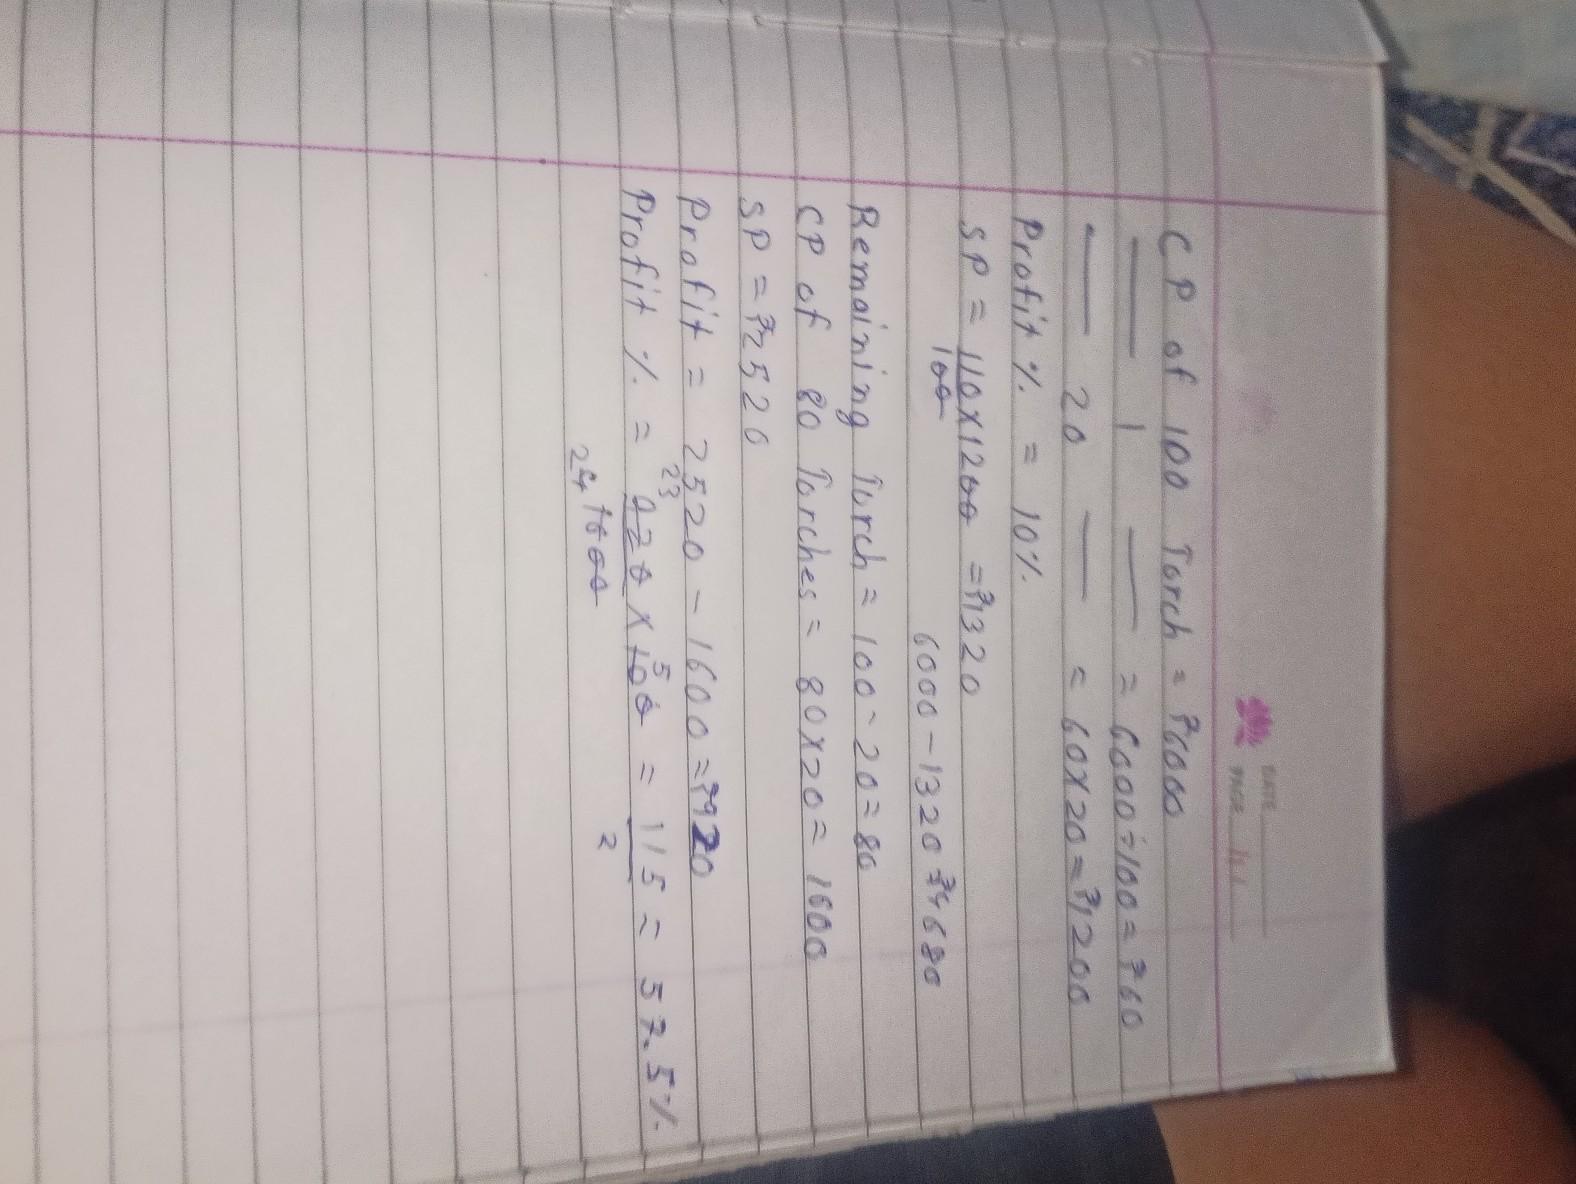 DATE
PAGE
CP of 100 Torch = ₹6000
— 1 — = 6000÷100 = ₹60
— 20 — = 60×20 = ₹1200
Profit % = 10%
SP = 110×1200 = ₹1320
100
6000-1320 ₹4680
Remaining Torch = 100-20=80
CP of 80 Torches = 80×20= 1600
SP = ₹2520
Profit = 2520 - 1600 = ₹920
23 5
Profit % = 920 × 100 = 115 = 57.5%
1600 2